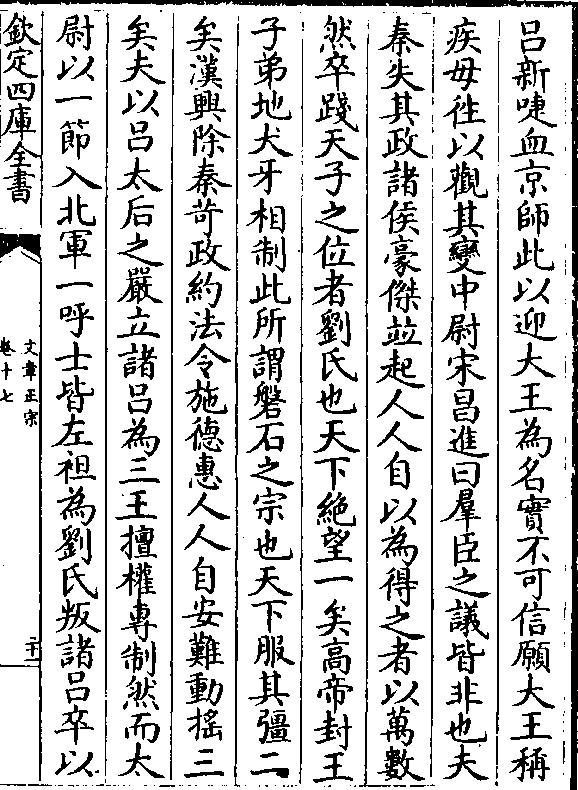 呂新啑血京師此以迎大王為名實不可信願大王稱
疾毋徃以觀其變中尉宋昌進曰羣臣之議皆非也夫
秦失其政諸侯豪傑並起人人自以為得之者以萬數
然卒踐天子之位者劉氏也天下絶望一矣高帝封王
子弟地犬牙相制此所謂磐石之宗也天下服其彊二
矣漢興除秦苛政約法令施徳惠人人自安難動搖三
矣夫以呂太后之嚴立諸呂為三王擅權專制然而太
尉以一節入北軍一呼士皆左袒為劉氏叛諸呂卒以
欽定四庫全書
文章正宗
卷十七
二十一